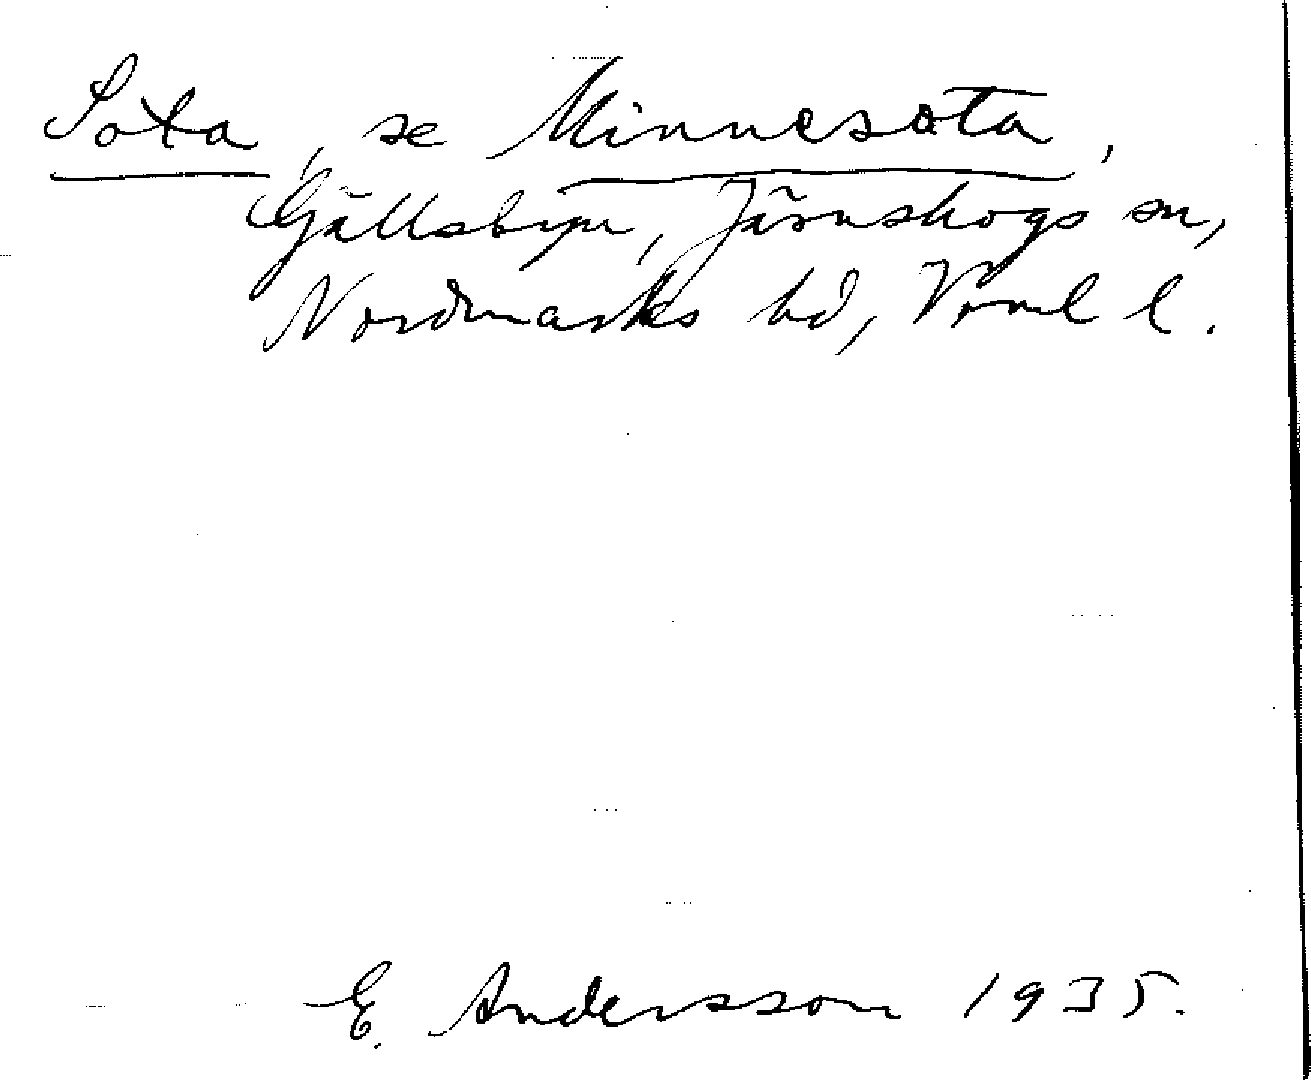 Sota, se Minnesota,
Gällsbyn, Järnskogs sn,
Nordmarks hd, Vrml l.
E. Andersson 1935.